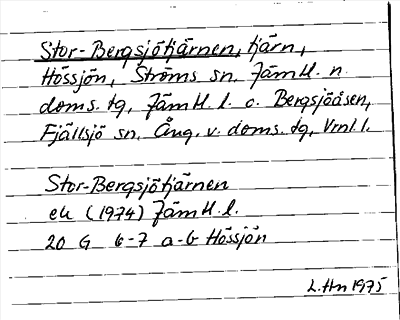 Stor-Bergsjötjärnen, tjärn,
Hössjön, Ströms sn, Jämtl. n.
doms. tg, Jämtl. l. o. Bergsjöåsen,
Fjällsjö sn, Ång. v. doms. tg, Vrnl l.
Stor-Bergsjötjärnen
ek (1974) Jämtl. l.
20 G 6-7 a-b Hössjön
L. Hn 1975